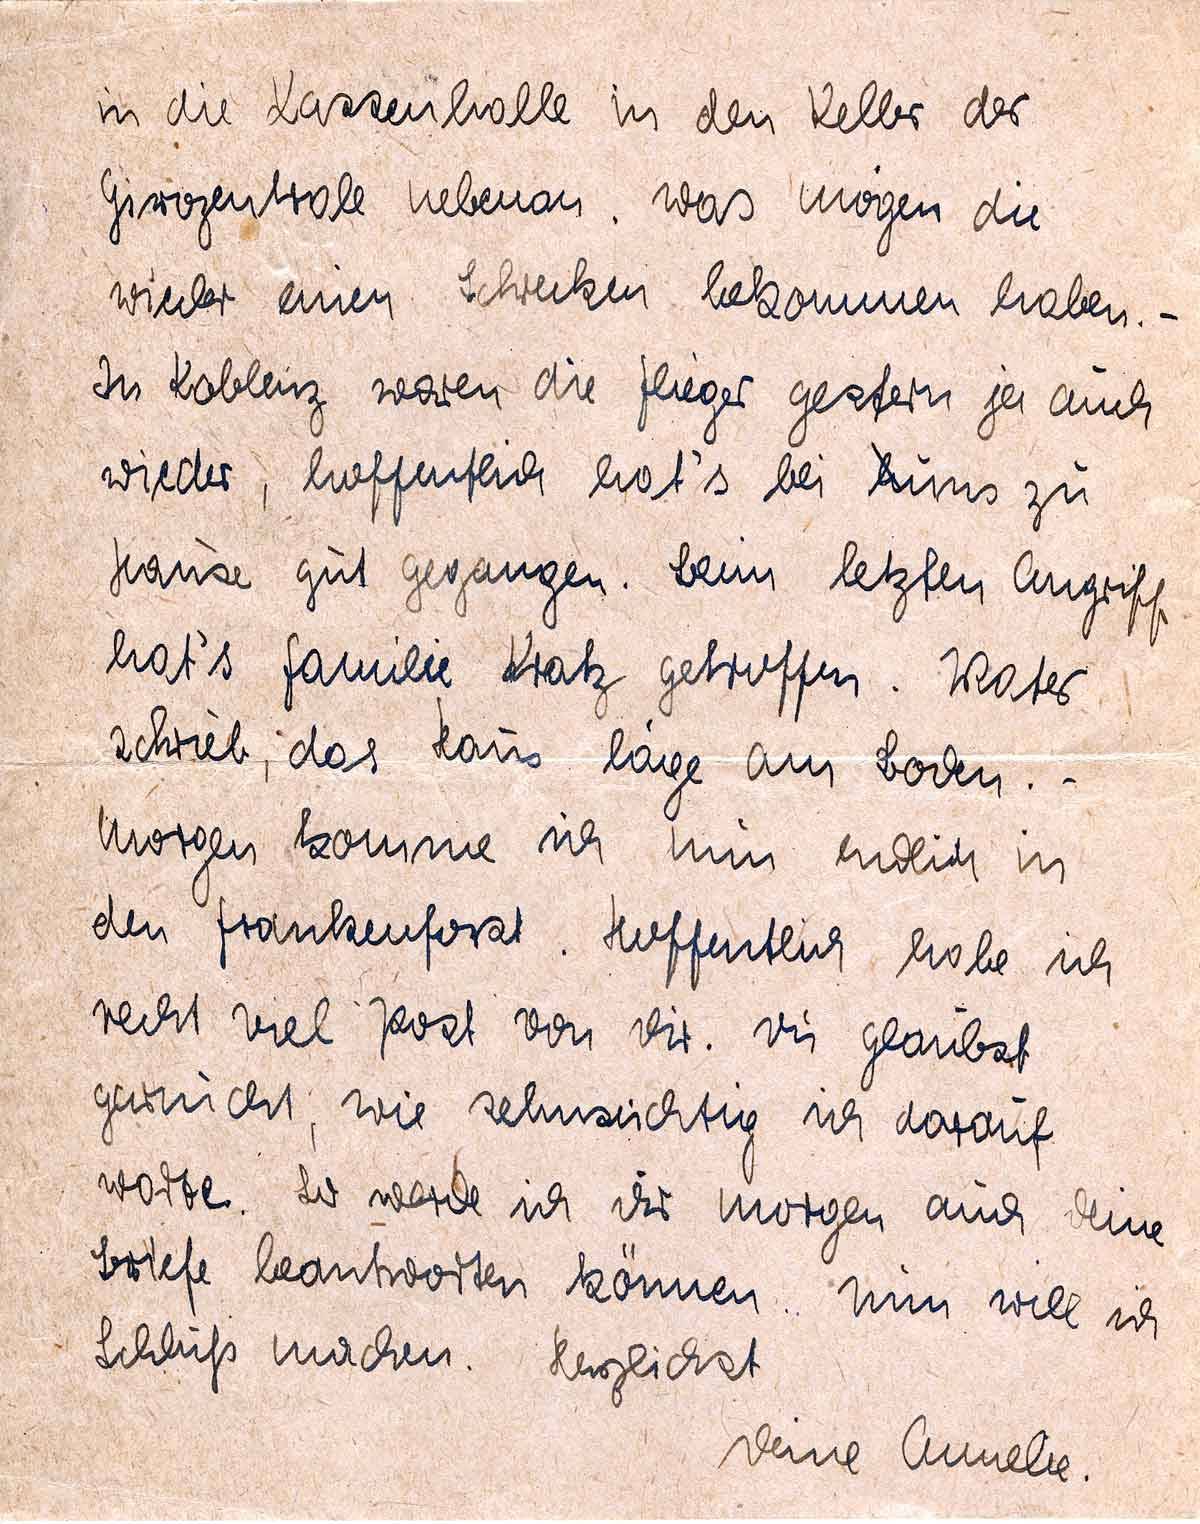 in die Kassenhalle in den Keller der
Girozentrale nebenan. Was mögen die
wieder einen Schrecken bekommen haben. -
In Koblenz waren die Flieger gestern ja auch
wieder, hoffentlich hat's bei uns zu
Hause gut gegangen. Beim letzten Angriff
hat's Familie Kratz getroffen. Vater
schrieb, das Haus läge am Boden. -
Morgen komme ich nun endlich in
den Frankenforst. Hoffentlich habe ich
recht viel Post von Dir. Du glaubst
garnicht, wie sehnsüchtig ich darauf
warte. So werde ich Dir morgen auch Deine
Briefe beantworten können.. Nun will ich
Schluß machen. Herzlichst
Deine Annelie.